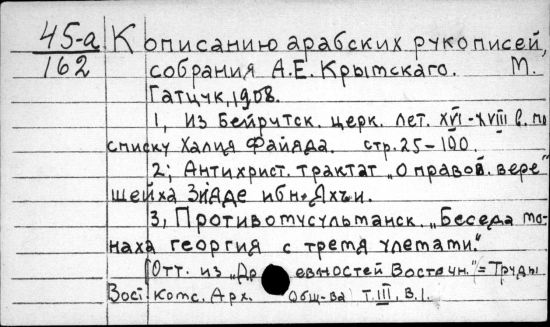 45-а К описанию арабских рукописей,
162 собрания А.Е. Крымскаго. М.
Гатцук, 1908.
1, Из Бейрутск. церк. лет. XVI-XVIII в. по
списку Халиля Файяда. стр. 25-100.
2; Антихрист. трактат „О правов. вере"
шейха Зияде ибн-Яхъи.
3, Противомусульманск. „Беседа мо-
наха георгия с тремя улемами."
[Отт. из „Древностей Восточн." = Труды
Вост. Комс. Арх. Общ-ва Т. III, В. I.